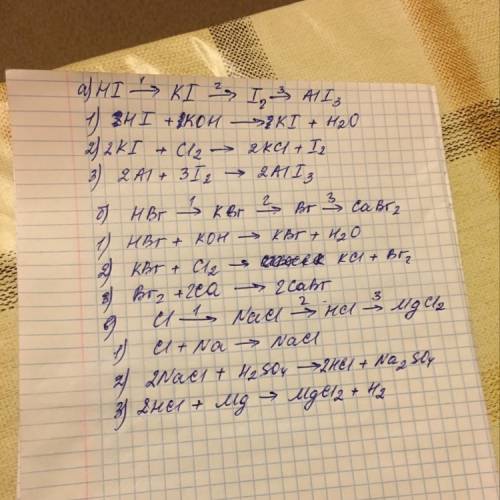 а) HI —1→ KI —2→ I₂ —3→ AlI₃
1) 2HI + 2KOH → 2KI + H₂O
2) 2KI + Cl₂ → 2KCl + I₂
3) 2Al + 3I₂ → 2AlI₃
б) HBr —1→ KBr —2→ Br —3→ CaBr₂
1) HBr + KOH → KBr + H₂O
2) KBr + Cl₂ → KCl + Br₂
3) Br₂ + 2Ca → 2CaBr
в) Cl —1→ NaCl —2→ HCl —3→ MgCl₂
1) Cl + Na → NaCl
2) 2NaCl + H₂SO₄ → 2HCl + Na₂SO₄
3) 2HCl + Mg → MgCl₂ + H₂